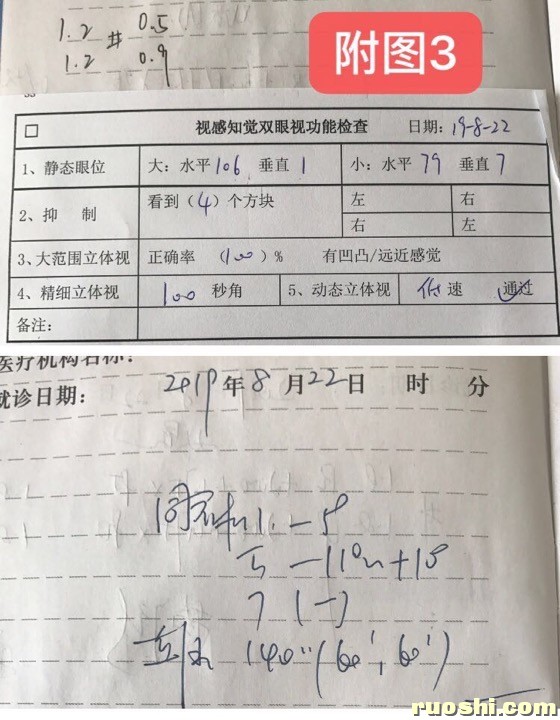 1.2 # 0.5
1.2 0.9
附图3
视感知觉双眼视功能检查 日期: 19-8-22
1、静态眼位 大: 水平 106 垂直 1 小: 水平 79 垂直 7
2、抑 制 看到 (4) 个方块 左 右
右 左
3、大范围立体视 正确率 (100) % 有凹凸/远近感觉
4、精细立体视 100 秒角 5、动态立体视 低 速 通过
备注:
医疗机构名称:
就诊日期: 2019年8月22日 时 分
同视机 1. -5°
-11°~+18°
(-)
立体 140"(60', 60')
ruoshi.com